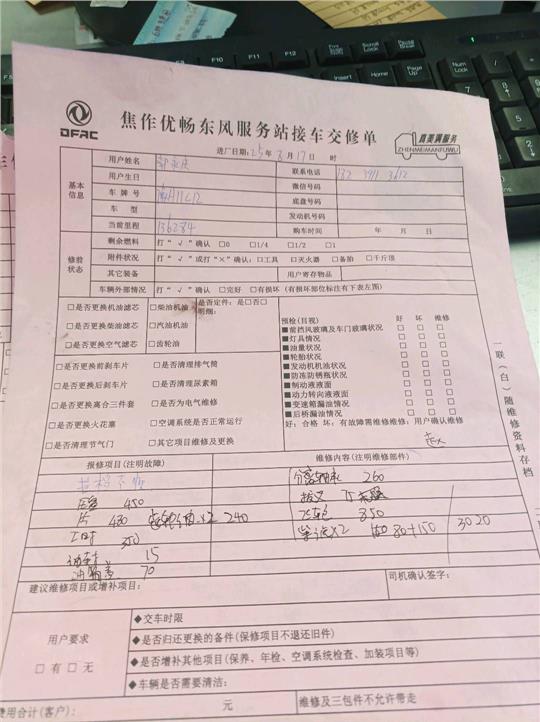 F9
F10
F11
F12
Prtsc
SysRq
Scroll
Lock
Pause
Break
Insert
Home
Page
Up
Num
Lock
DFAC
焦作优畅东风服务站接车交修单
真美满服务
ZHENMEIMANFUWU
进厂日期：25年3月17日 时
基本信息
用户姓名
联系电话
用户生日
微信号码
车牌号
底盘号码
车型
发动机号码
当前里程 136284
购车时间 年 月 日
修前状态
剩余燃料 打“√”确认 □0 □1/4 □1/2 □1
附件状况 打“√”或打“×”确认：□工具 □灭火器 □备胎 □千斤顶
其它装备
用户寄存物品
车辆外部情况 打“√”确认 □完好 □有损坏（有损坏部位标注有下表左图）
□是否更换机油滤芯 □柴油机油
□是否更换柴油滤芯 □汽油机油
□是否更换空气滤芯 □齿轮油
是否定件：是□否□
明细：
□是否更换前刹车片 □是否清理排气筒
□是否更换后刹车片 □是否清理尿素箱
□是否更换离合三件套 □是否为电气维修
□是否更换火花塞 □空调系统是否正常运行
□是否清理节气门 □其它项目维修及更换
预检（目视） 好 坏 维修
■前挡风玻璃及车门玻璃状况 □ □ □
■灯具情况 □ □ □
■油量状况 □ □ □
■轮胎状况 □ □ □
■发动机机油状况 □ □ □
■防冻防锈瓶状况 □ □ □
■制动液液面 □ □ □
■动力转向液液面 □ □ □
■变速箱漏油情况 □ □ □
■后桥漏油情况 □ □ □
好：合格 坏：有故障需维修维修：用户确认维修
一联（白）随维修资料存档
报修项目（注明故障）
维修内容（注明维修部件）
分离轴承 260
压盘 450
拨叉
片 480
X2 240
飞轮 850
工时 350
X2
80+150
3020
15
70
建议维修项目或增补项目：
司机确认签字：
用户要求
□有□无
◆交车时限
◆是否归还更换的备件（保修项目不退还旧件）
◆是否增补其他项目（保养、年检、空调系统检查、加装项目等）
◆车辆是否需要清洁：
费用合计（客户）： 元
维修及三包件不允许带走